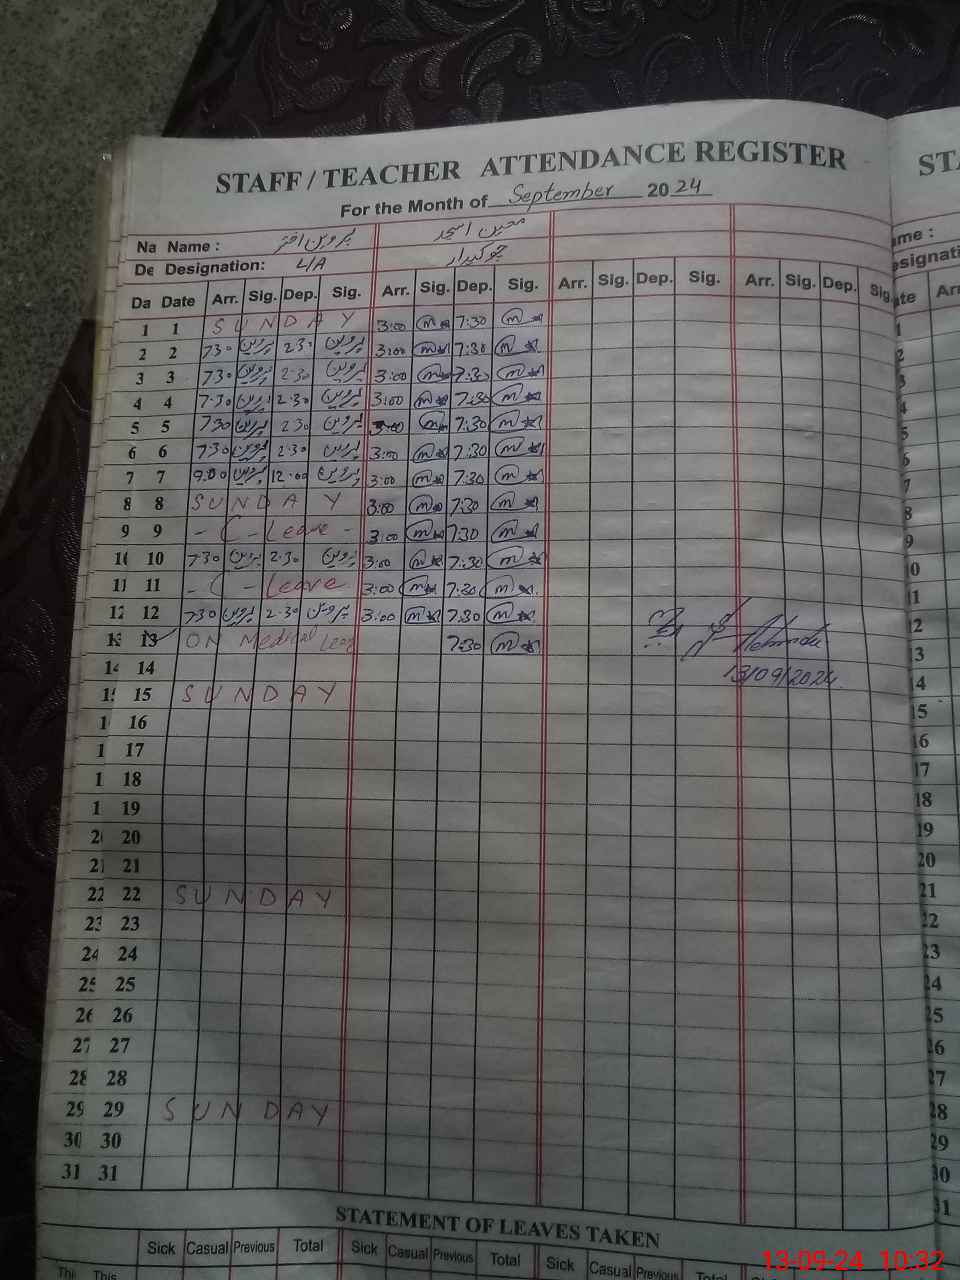 STAFF / TEACHER ATTENDANCE REGISTER
For the Month of September 2024
Na Name : پروین اختر
De Designation: L/A چوکیدار
Da Date Arr. Sig. Dep. Sig. Arr. Sig. Dep. Sig. Arr. Sig. Dep. Sig. Arr. Sig. Dep. Sig.
1 1 SUNDAY 3:00 7:30
2 2 730 پروین 2:30 پروین 3:00 7:30
3 3 730 پروین 2:30 پروین 3:00 7:30
4 4 7:30 پروین 2:30 پروین 3:00 7:30
5 5 730 پروین 230 پروین 3:00 7:30
6 6 730 پروین 2:30 پروین 3:00 7:30
7 7 9.00 پروین 12:00 پروین 3:00 7:30
8 8 SUNDAY 3:00 7:30
9 9 - C - Leave - 3:00 7:30
10 10 730 پروین 2:30 پروین 3:00 7:30
11 11 - C - Leave 3:00 7:30
12 12 730 پروین 2:30 پروین 3:00 7:30
13 13 ON Medical Leave 7:30
13/09/2024
14 14
15 15 SUNDAY
1 16
1 17
1 18
1 19
20 20
21 21
22 22 SUNDAY
23 23
24 24
25 25
26 26
27 27
28 28
29 29 SUNDAY
30 30
31 31
STATEMENT OF LEAVES TAKEN
Sick Casual Previous Total Sick Casual Previous Total Sick Casual Previous Total
Thi This
13-09-24 10:32